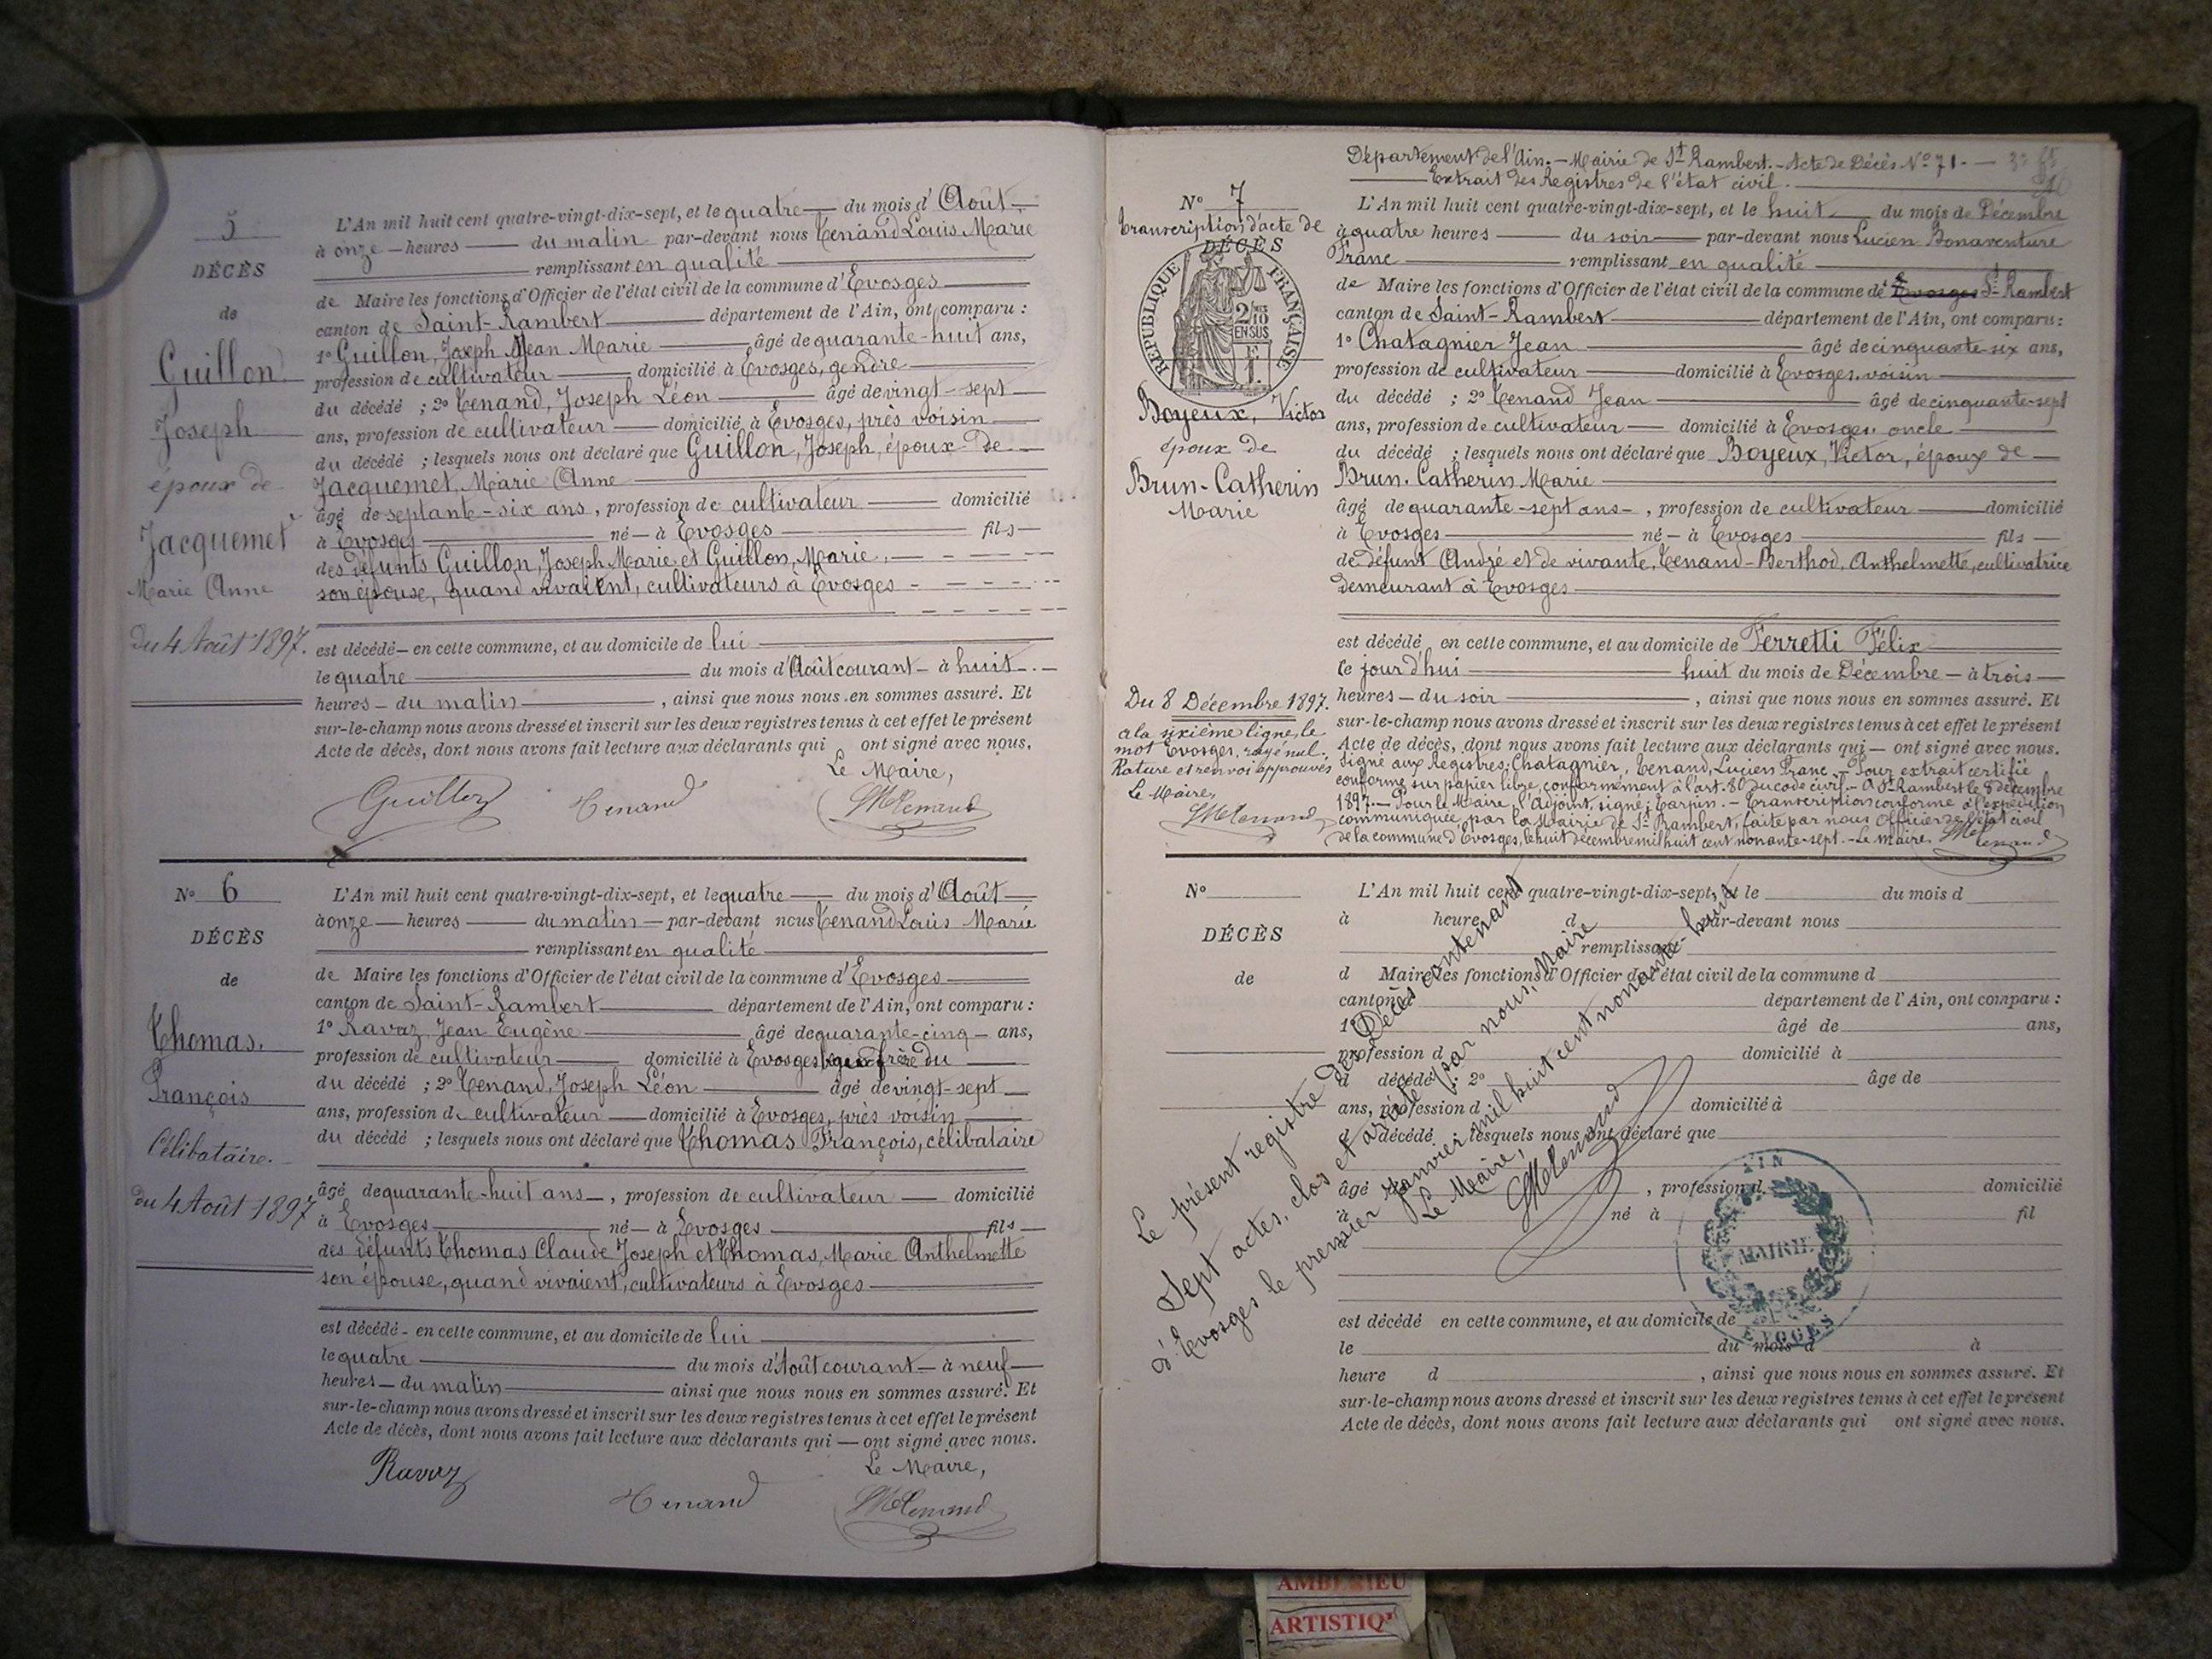 5
DÉCÈS
de
Guillon
Joseph
époux de
Jacquemet
Marie Anne
Du 4 Août 1897.
L'An mil huit cent quatre-vingt-dix-sept, et le quatre du mois d'Août
à onze heures du matin par-devant nous Tenand Louis Marie
remplissant en qualité
de Maire les fonctions d'Officier de l'état civil de la commune d'Evosges
canton de Saint-Rambert département de l'Ain, ont comparu :
1° Guillon, Joseph Jean Marie âgé de quarante-huit ans,
profession de cultivateur domicilié à Evosges, gendre
du décédé ; 2° Tenand, Joseph Léon âgé de vingt-sept
ans, profession de cultivateur domicilié à Evosges, près voisin
du décédé ; lesquels nous ont déclaré que Guillon, Joseph, époux de
Jacquemet, Marie Anne
âgé de septante-six ans, profession de cultivateur domicilié
à Evosges né à Evosges fils
des défunts Guillon, Joseph Marie et Guillon, Marie,
son épouse, quand vivaient, cultivateurs à Evosges
est décédé en cette commune, et au domicile de lui
le quatre du mois d'Août courant à huit
heures du matin, ainsi que nous nous en sommes assuré. Et
sur-le-champ nous avons dressé et inscrit sur les deux registres tenus à cet effet le présent
Acte de décès, dont nous avons fait lecture aux déclarants qui ont signé avec nous.
Le Maire,
Guillon Tenand LMTenand
N° 6
DÉCÈS
de
Thomas.
François
Célibataire.
du 4 Août 1897
L'An mil huit cent quatre-vingt-dix-sept, et le quatre du mois d'Août
à onze heures du matin par-devant nous Tenand Louis Marie
remplissant en qualité
de Maire les fonctions d'Officier de l'état civil de la commune d'Evosges
canton de Saint-Rambert département de l'Ain, ont comparu :
1° Ravaz, Jean Eugène âgé de quarante-cinq ans,
profession de cultivateur domicilié à Evosges frère du
du décédé ; 2° Tenand, Joseph Léon âgé de vingt-sept
ans, profession de cultivateur domicilié à Evosges, près voisin
du décédé ; lesquels nous ont déclaré que Thomas François, célibataire
âgé de quarante-huit ans, profession de cultivateur domicilié
à Evosges né à Evosges fils
des défunts Thomas Claude Joseph et Thomas, Marie Anthelmette
son épouse, quand vivaient, cultivateurs à Evosges
est décédé en cette commune, et au domicile de lui
le quatre du mois d'Août courant à neuf
heures du matin ainsi que nous nous en sommes assuré. Et
sur-le-champ nous avons dressé et inscrit sur les deux registres tenus à cet effet le présent
Acte de décès, dont nous avons fait lecture aux déclarants qui ont signé avec nous.
Le Maire,
Ravaz Tenand LMTenand
Département de l'Ain. - Mairie de St Rambert. - Acte de Décès N° 71.
Extrait des Registres de l'état civil.
N° 7
Transcription d'acte de
DÉCÈS
RÉPUBLIQUE FRANÇAISE
2/10 EN SUS
Boyeux, Victor
époux de
Brun-Catherin
Marie
Du 8 Décembre 1897.
a la sixième ligne, le
mot Evosges, rayé nul.
Rature et renvoi approuvés
Le Maire,
LMTenand
L'An mil huit cent quatre-vingt-dix-sept, et le huit du mois de Décembre
à quatre heures du soir par-devant nous Lucien Bonaventure
Franc remplissant en qualité
de Maire les fonctions d'Officier de l'état civil de la commune de Evosges St Rambert
canton de Saint-Rambert département de l'Ain, ont comparu :
1° Chatagnier Jean âgé de cinquante-six ans,
profession de cultivateur domicilié à Evosges, voisin
du décédé ; 2° Tenand Jean âgé de cinquante-sept
ans, profession de cultivateur domicilié à Evosges oncle
du décédé ; lesquels nous ont déclaré que Boyeux, Victor, époux de
Brun-Catherin Marie
âgé de quarante-sept ans, profession de cultivateur domicilié
à Evosges né à Evosges fils
de défunt André et de vivante, Tenand-Berthod, Anthelmette, cultivatrice
demeurant à Evosges
est décédé en cette commune, et au domicile de Ferretti Félix
le jour d'hui huit du mois de Décembre à trois
heures du soir, ainsi que nous nous en sommes assuré. Et
sur-le-champ nous avons dressé et inscrit sur les deux registres tenus à cet effet le présent
Acte de décès, dont nous avons fait lecture aux déclarants qui ont signé avec nous.
Signé aux Registres : Chatagnier, Tenand, Lucien Franc. - Pour extrait certifié
conforme, sur papier libre, conformément à l'art. 80 du code civil. - A St Rambert le 8 décembre
1897. - Pour le Maire, l'Adjoint, signé : Tarpin. - Transcription conforme à l'expédition
communiquée par la Mairie de St Rambert, faite par nous Officier de l'état civil
de la commune d'Evosges, le huit décembre mil huit cent nonante-sept. - Le Maire, LMTenand
N°
DÉCÈS
de
L'An mil huit cent quatre-vingt-dix-sept, et le du mois d
à heure d par-devant nous
remplissant
d Maire les fonctions d'Officier de l'état civil de la commune d
canton d département de l'Ain, ont comparu :
1° âgé de ans,
profession d domicilié à
d décédé ; 2° âge de
ans, profession d domicilié à
d décédé ; lesquels nous ont déclaré que
âgé , profession d domicilié
à né à fil
est décédé en cette commune, et au domicile de
le du mois d à
heure d , ainsi que nous nous en sommes assuré. Et
sur-le-champ nous avons dressé et inscrit sur les deux registres tenus à cet effet le présent
Acte de décès, dont nous avons fait lecture aux déclarants qui ont signé avec nous.
Le présent registre des Décès contenant
Sept actes, clos et arrêté par nous, Maire
d'Evosges le premier Janvier mil huit cent nonante huit
Le Maire,
LMTenand
AIN
MAIRIE
EVOGES
AMBÉRIEU
ARTISTIQ